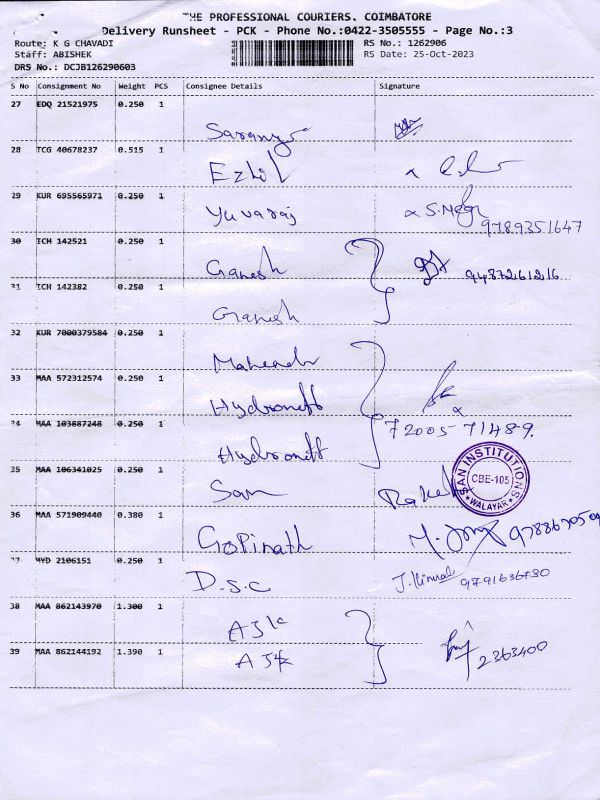 THE PROFESSIONAL COURIERS, COIMBATORE
Delivery Runsheet - PCK - Phone No.:0422-3505555 - Page No.:3
Route: K G CHAVADI
RS No.: 1262906
Staff: ABISHEK
RS Date: 25-Oct-2023
DRS No.: DCJB126290603
S No Consignment No Weight PCS Consignee Details Signature
27 EDQ 21521975 0.250 1
Saranya
28 TCG 40678237 0.515 1
Ezhil
29 KUR 695565971 0.250 1
Yuvaraj
9789351647
30 ICH 142521 0.250 1
Ganesh 9487261216
31 ICH 142382 0.250 1
Ganesh
32 KUR 7000379584 0.250 1
33 MAA 572312574 0.250 1
72005-71489.
34 MAA 103887248 0.250 1
35 MAA 106341025 0.250 1
San
SAN INSTITUTIONS
CBE-105
WALAYAR
36 MAA 571909440 0.380 1
Gopinath
37 MYD 2106151 0.250 1
D.s.c 9791636730
38 MAA 862143970 1.300 1
39 MAA 862144192 1.390 1
2363400